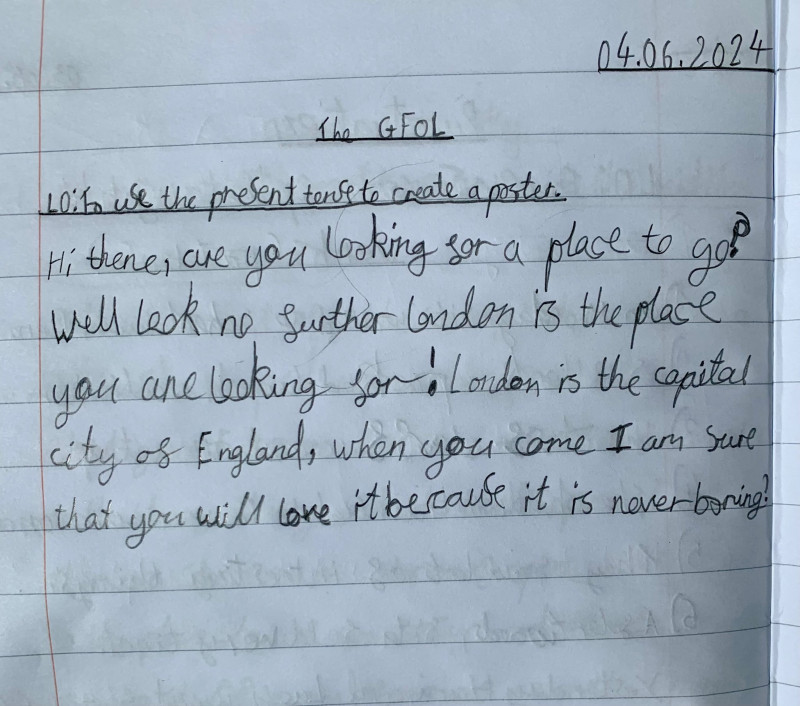 04.06.2024
The GFOL
LO: To use the present tense to create a poster.
Hi there, are you looking for a place to go?
Well look no further London is the place
you are looking for! London is the capital
city of England, when you come I am sure
that you will love it because it is never boring!